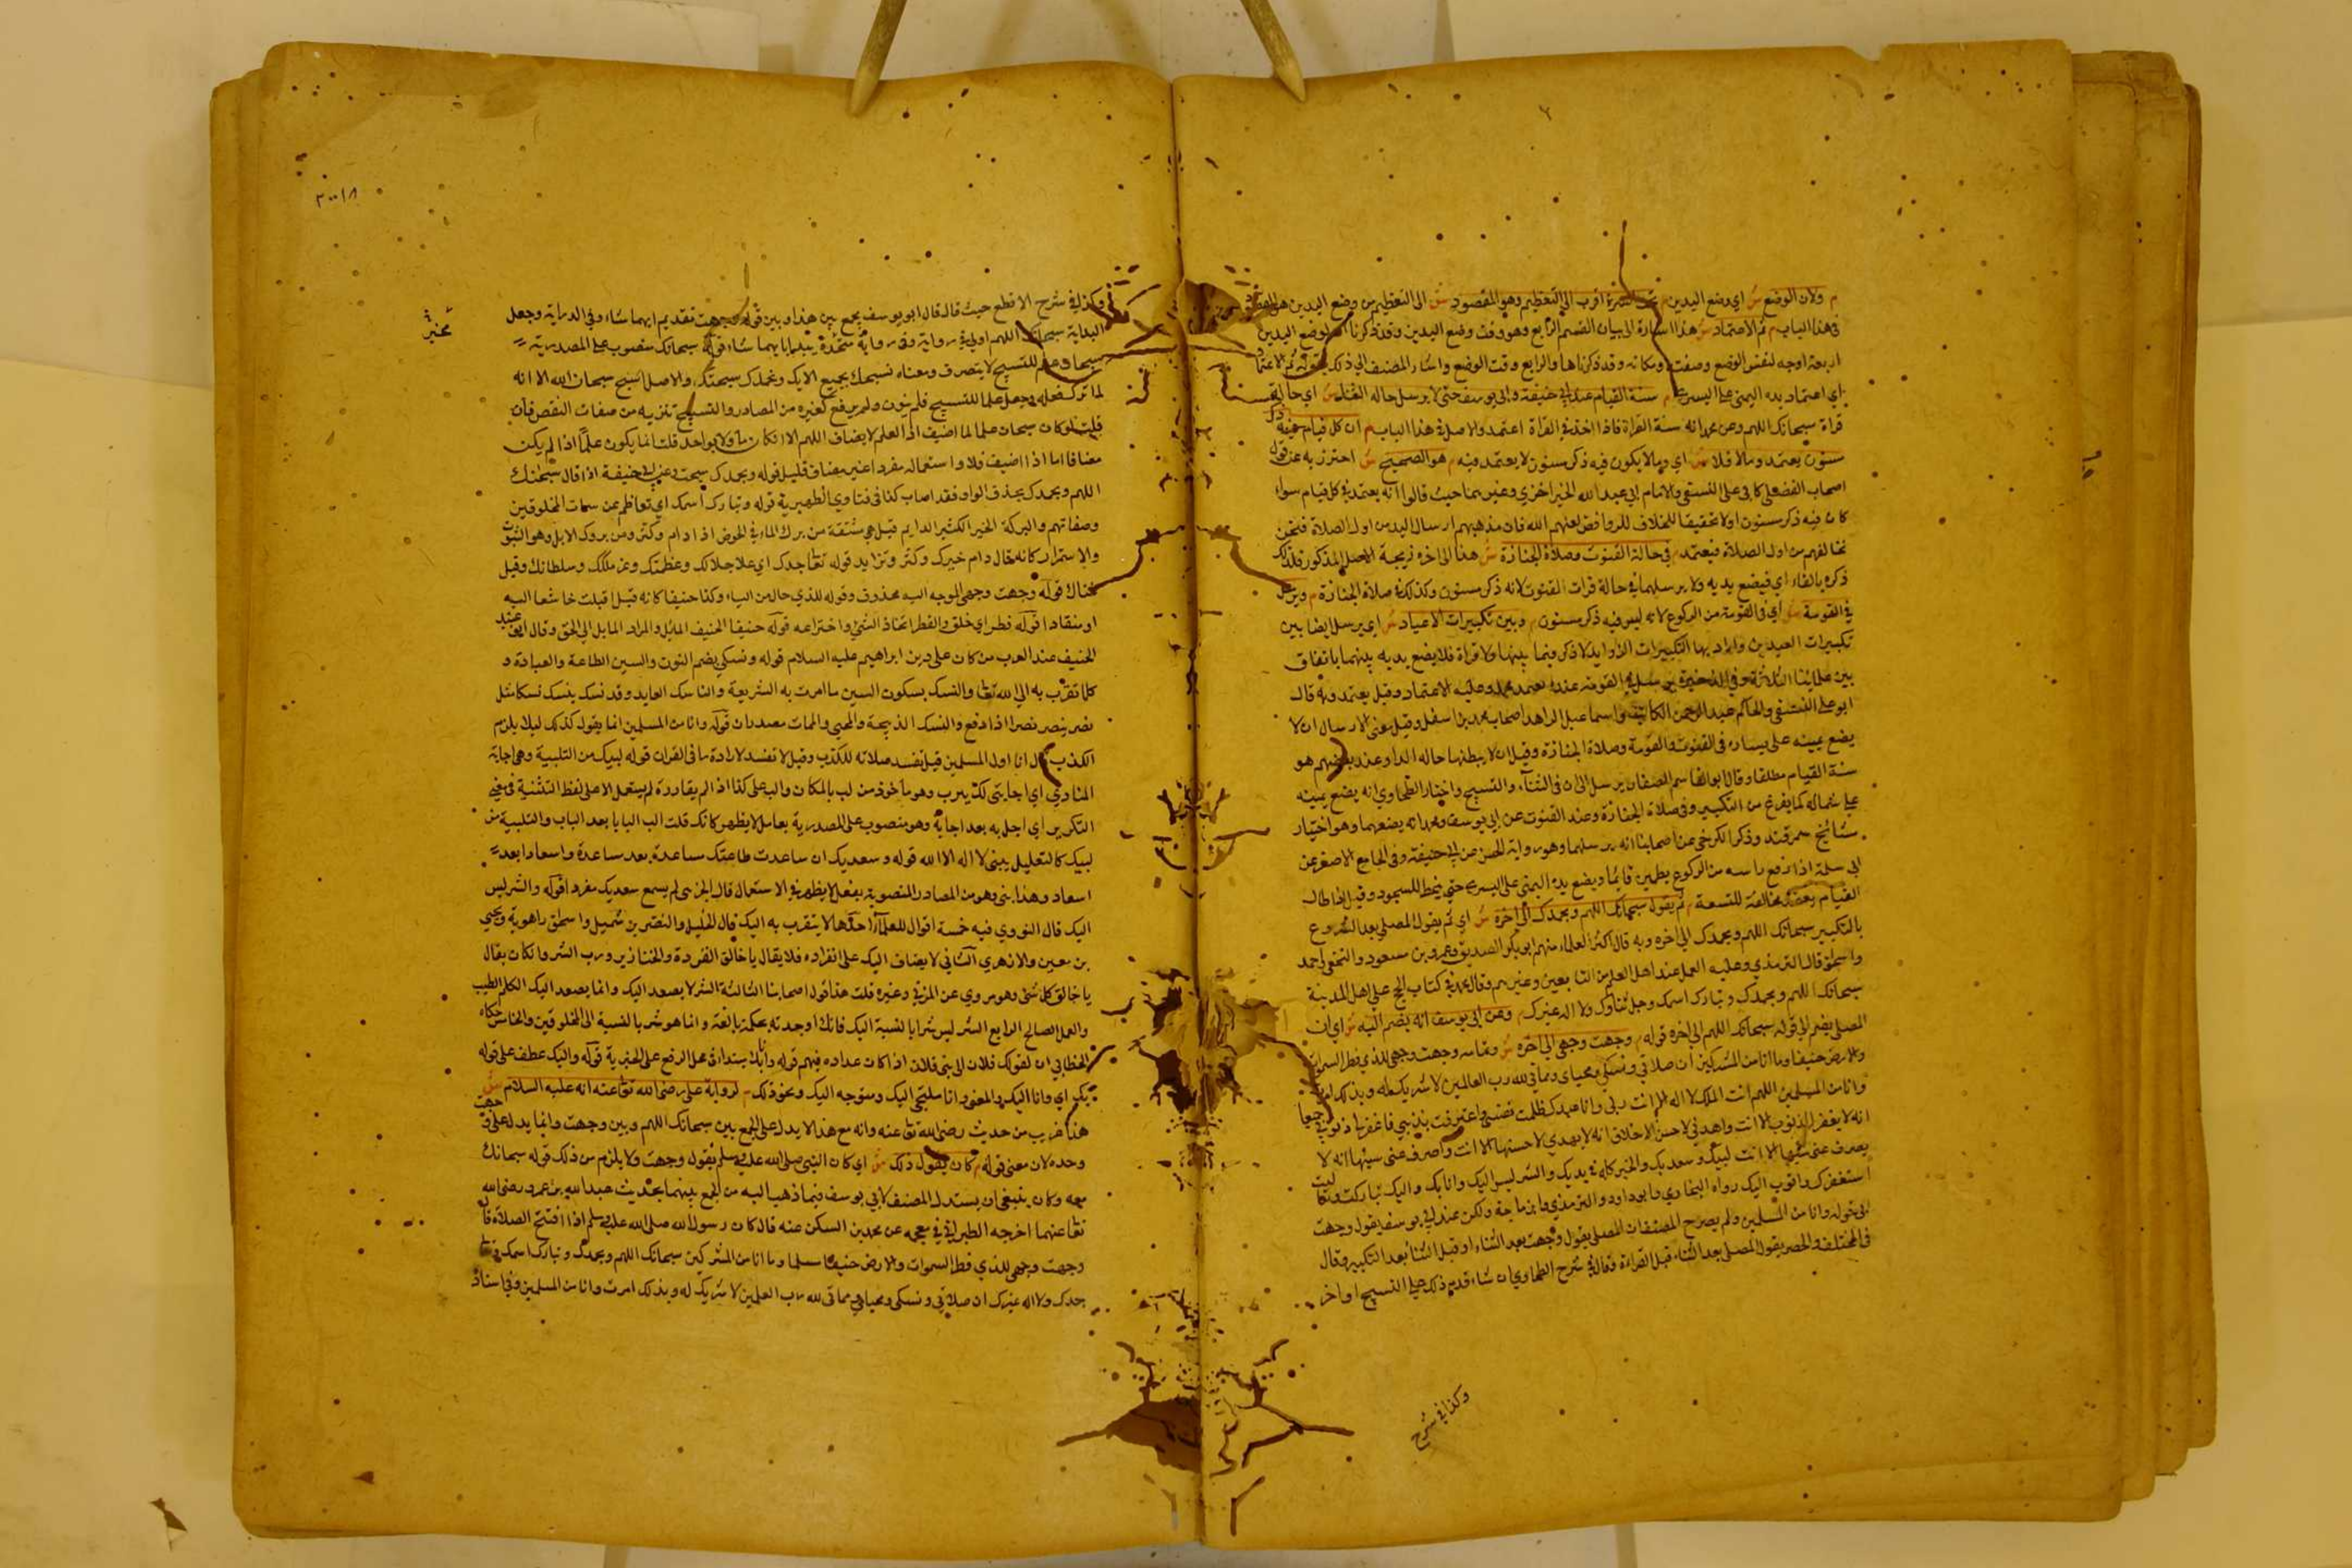 م ولان الوضع ش اي وضع اليدين م تحت السرة اقرب الى التعظيم وهو المقصود ش الى التعظيم من وضع اليدين هو المقصود
في هذا الباب م ثم الاعتماد ش هذا اشارة الى بيان القسم الرابع وهو وقت وضع اليدين وقد ذكرنا لوضع اليدين
اربعة اوجه لنفس الوضع وصفته ومكانه وقد ذكرناها والرابع وقت الوضع واشار المصنف الى ذلك بقوله ثم الاعتماد
اي اعتماد يده اليمنى على اليسرى م سنة القيام عند ابي حنيفة وابي يوسف حتى لا يرسل حالة الثناء ش اي حالة
قراة سبحانك اللهم وعن محمد انه سنة القراة فاذا اخذ في القراة اعتمد والاصل في هذا الباب م ان كل قيام فيه ذكر
مسنون يعتمد وما لا فلا ش اي وما لا يكون فيه ذكر مسنون لا يعتمد فيه م هو الصحيح ش احترز به عن قول
اصحاب الفضلي كابي علي النسفي والامام ابي عبد الله الخيراخزي وغيرهما حيث قالوا انه يعتمد في كل قيام سواء
كان فيه ذكر مسنون او لا تحقيقا للخلاف للروافض لعنهم الله فان مذهبهم ارسال اليد من اول الصلاة فنحن
نخالفهم من اول الصلاة فيعتمد م في حالة القنوت وصلاة الجنازة ش هذا الى اخره نتيجة الاصل المذكور فلذلك
ذكره بالفاء اي فيضع يديه ولا يرسلهما في حالة قرات القنوت لانه ذكر مسنون وكذلك في صلاة الجنازة م ويرسل
في القومة ش اي في القومة من الركوع لانه ليس فيه ذكر مسنون م وبين تكبيرات الاعياد ش اي يرسل ايضا بين
تكبيرات العيدين واراد بها التكبيرات الزوايد لا ذكر فيما بينها ولا قراة فلا يضع يديه بينهما باتفاق
بين علمائنا الثلاثة وفي الذخيرة يرسل في القومة عند محمد وعليه الاعتماد وقيل يعتمد وبه قال
ابو علي النسفي والحاكم عبد الرحمن الكاتب واسماعيل الزاهد اصحاب محمد بن اسفل وقيل معنى الارسال ان لا
يضع يمينه على يساره في القنوت والقومة وصلاة الجنازة وقيل ان لا يبطنهما حالة الدعاء وعند بعضهم هو
سنة القيام مطلقا وقال ابو القاسم الصفار يرسل الى ان في الثناء والتسبيح واختار الطحاوي انه يضع يمينه
على شماله كما يفرغ من التكبير وفي صلاة الجنازة وعند القنوت عن ابي يوسف ومحمد انه يضعهما وهو اختيار
مشائخ سمرقند وذكر الكرخي عن اصحابنا انه يرسلهما وهو رواية الحسن عن ابي حنيفة وفي الجامع الاصغر عن
ابي سلمة اذا رفع راسه من الركوع يطمين قايما ويضع يده اليمنى على اليسرى حتى ينحط للسجود وقيل اذا طال
القيام يضع مخالفة للشيعة م ثم يقول سبحانك اللهم وبحمدك الى اخره ش اي ثم يقول المصلي بعد الشروع
بالتكبير سبحانك اللهم وبحمدك الى اخره وبه قال اكثر العلماء منهم ابو بكر الصديق وعمر وبن مسعود والنخعي واحمد
واسحاق قال الترمذي وعليه العمل عند اهل العلم من التابعين وغيرهم وقال محمد في كتاب الحج على اهل المدينة
سبحانك اللهم وبحمدك وتبارك اسمك وجل ثناؤك ولا اله غيرك م وعن ابي يوسف انه يضم اليه ش اي ان
المصلي يضم الى قوله سبحانك اللهم الى اخره قوله م وجهت وجهي الى اخره ش وتمامه وجهت وجهي للذي فطر السموات
والارض حنيفا وما انا من المشركين ان صلاتي ونسكي ومحياي ومماتي لله رب العالمين لا شريك له وبذلك امرت
وانا من المسلمين اللهم انت الملك لا اله الا انت ربي وانا عبدك ظلمت نفسي واعترفت بذنبي فاغفر لي ذنوبي جميعا
انه لا يغفر الذنوب الا انت واهدني لاحسن الاخلاق انه لا يهدي لاحسنها الا انت واصرف عني سيئها انه لا
يصرف عني سيئها الا انت لبيك وسعديك والخير كله في يديك والشر ليس اليك وانا بك واليك تباركت وتعاليت
استغفرك واتوب اليك رواه البخاري وابو داود والترمذي وابن ماجة ولكن عند ابي يوسف يقول وجهت
الى قوله وانا من المسلمين ولم يصرح المصنف ان المصلي يقول وجهت بعد الثناء او قبل الثناء بعد التكبير وقال
في المختلف والحصر يقول المصلي بعد الثناء قبل القراءة وقال في شرح الطحاوي ان شاء قدم ذلك على التسبيح او اخر
وكذا في شرح
٣٠٠١٨
وكذا في شرح الاقطع حيث قال قال ابو يوسف يجمع بين هذا وبين قوله وجهت تقديم ايهما شاء وفي الدراية وجعل
البداية سبحانك اللهم اولى في رواية وفي رواية محمد يبتدا بايهما شاء قوله سبحانك منصوب على المصدرية
سبحان علم للتسبيح لا يتصرف ومعناه نسبحك بجميع الايك وبحمدك سبحتك والاصل اسبح سبحان الله الا انه
لما ترك فعله وجعل علما للتسبيح فلم ينون ولم يرفع كغيره من المصادر والتسبيح تنزيه من صفات النقص فان
قلت لو كان سبحان علما لما اضيف اذ العلم لا يضاف اللهم الا ان كان ماولا بواحد قلت انما يكون علما اذا لم يكن
مضافا اما اذا اضيف فلا واستعماله مفردا غير مضاف قليل قوله وبحمدك سبحت وعن ابي حنيفة اذا قال سبحانك
اللهم وبحمدك بحذف الواو فقد اصاب كذا في فتاوي الظهيرية قوله وتبارك اسمك اي تعاظم عن سمات المخلوقين
وصفاتهم والبركة الخير الكثير الدايم قيل هي مشتقة من برك الماء في الحوض اذا دام وكثر ومن بروك الابل وهو الثبوت
والاستمرار كانه قال دام خيرك وكثر وتزايد قوله تعالى جدك اي علا جلالك وعظمتك وعز ملكك وسلطانك وقيل
غناك قوله وجهت وجهي الموجه اليه محذوف وقوله للذي حال من الياء وكذا حنيفا كانه قيل اقبلت خاشعا اليه
او منقادا قوله فطر اي خلق والفطر اتخاذ الشيء واختراعه قوله حنيفا الحنيف المايل والمراد المايل الى الحق وقال ابو عبيد
الحنيف عند العرب من كان على دين ابراهيم عليه السلام قوله ونسكي بضم النون والسين الطاعة والعبادة و
كل ما تقرب به الى الله تعالى والنسك بسكون السين ما امرت به الشريعة والناسك العابد وقد نسك ينسك نسكا مثل
نصر ينصر نصرا اذا دفع والنسك الذبيحة والمحيى والممات مصدران قوله وانا من المسلمين انما يقول كذلك ليلا يلزم
الكذب قال انا اول المسلمين قيل تفسد صلاته للكذب وقيل لا تفسد لارادة ما في القران قوله لبيك من التلبية وهي اجابة
المنادي اي اجابتي لك يا رب وهو ماخوذ من لب بالمكان والب على كذا اذا لم يفارقه لم يستعمل الا على لفظ التثنية في معنى
التكرير اي اجابة بعد اجابة وهو منصوب على المصدرية بعامل لا يظهر كانك قلت الب البابا بعد الباب والتلبية من
لبيك كالتهليل يبنى لا اله الا الله قوله وسعديك ان ساعدت طاعتك مساعدة بعد مساعدة واسعادا بعد
اسعاد وهذا بني وهو من المصادر المنصوبة بفعل لا يظهر في الاستعمال قال الجرمي لم يسمع سعديك مفردا قوله والشر ليس
اليك قال النووي فيه خمسة اقوال للعلماء احدها لا يتقرب به اليك قال الخليل والنضر بن شميل واسحاق راهوية ويحيي
بن معين والازهري الثاني لا يضاف اليك على انفراده فلا يقال يا خالق القردة والخنازير ورب الشر وان كان يقال
يا خالق كل شيء وهو مروي عن المزني وغيره قلت هذا قول اصحابنا الثالث الشر لا يصعد اليك وانما يصعد اليك الكلم الطيب
والعمل الصالح الرابع الشر ليس شرا بالنسبة اليك فانك اوجدته بحكمة بالغة وانما هو شر بالنسبة الى المخلوقين والخامس حكاه
الخطابي ان كقولك فلان الى بني فلان اذا كان عداده فيهم قوله وانا بك مبتدا في محل الرفع على الخبرية قوله واليك عطف على قوله
بك اي وانا اليك والمعنى انا ملتجي اليك ومتوجه اليك ونحو ذلك م لرواية علي رضي الله تعالى عنه انه عليه السلام ش
هذا غريب من حديث رضي الله تعالى عنه وانه مع هذا لا يدل على الجمع بين سبحانك اللهم وبين وجهت وانما يدل على وجهت
وحده لان معنى قوله م كان يقول ذلك ش اي كان النبي صلى الله عليه وسلم يقول وجهت ولا يلزم من ذلك قوله سبحانك
معه وكان ينبغي ان يستدل المصنف لابي يوسف فيما ذهب اليه من الجمع بينهما بحديث عبد الله بن عمر رضي الله
تعالى عنهما اخرجه الطبراني في معجمه عن محمد بن السكن عنه قال كان رسول الله صلى الله عليه وسلم اذا افتتح الصلاة قال
وجهت وجهي للذي فطر السموات والارض حنيفا مسلما وما انا من المشركين سبحانك اللهم وبحمدك وتبارك اسمك وتعالى
جدك ولا اله غيرك ان صلاتي ونسكي ومحياي ومماتي لله رب العلمين لا شريك له وبذلك امرت وانا من المسلمين وفي اسناد